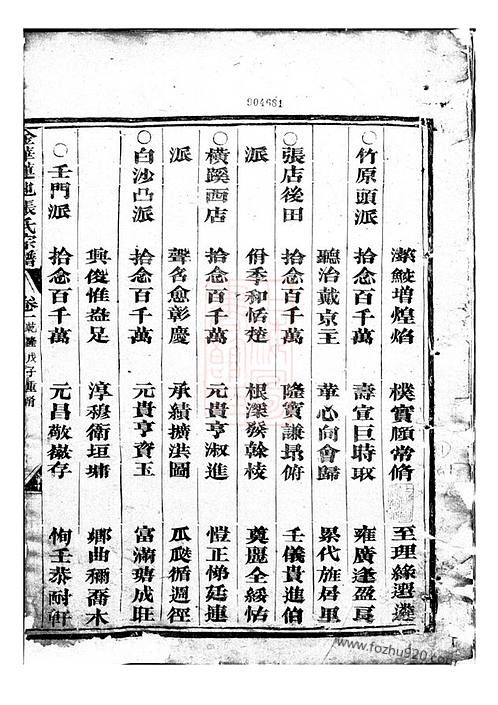 904681
潔鮫增煌焰 樸實願常脩 至理緣選遵
○竹原頭派 拾念百千萬 壽宣巨時取 雍廣達盈長
聽治戴京王 華心向會歸 累代旌居里
○張店後田 拾念百千萬 隆賓謙昂俯 壬儀貴進伯
派 佾季和恬楚 根深發幹枝 奠麗全綏怙
○橫蹊西店 拾念百千萬 元貴亨淑進 愷正悌廷連
派 聲名愈彰慶 承績擴洪圖 瓜瓞循週徑
○白沙凸派 拾念百千萬 元貴亨資玉 富滿瑭成旺
興俊惟益足 淳穆衛垣墉 鄉曲稱喬木
○壬門派 拾念百千萬 元昌敬徽存 恂壬恭耐軒
金華蓮池張氏宗譜 卷一 乾隆戊子重脩
www.fozhu920.com